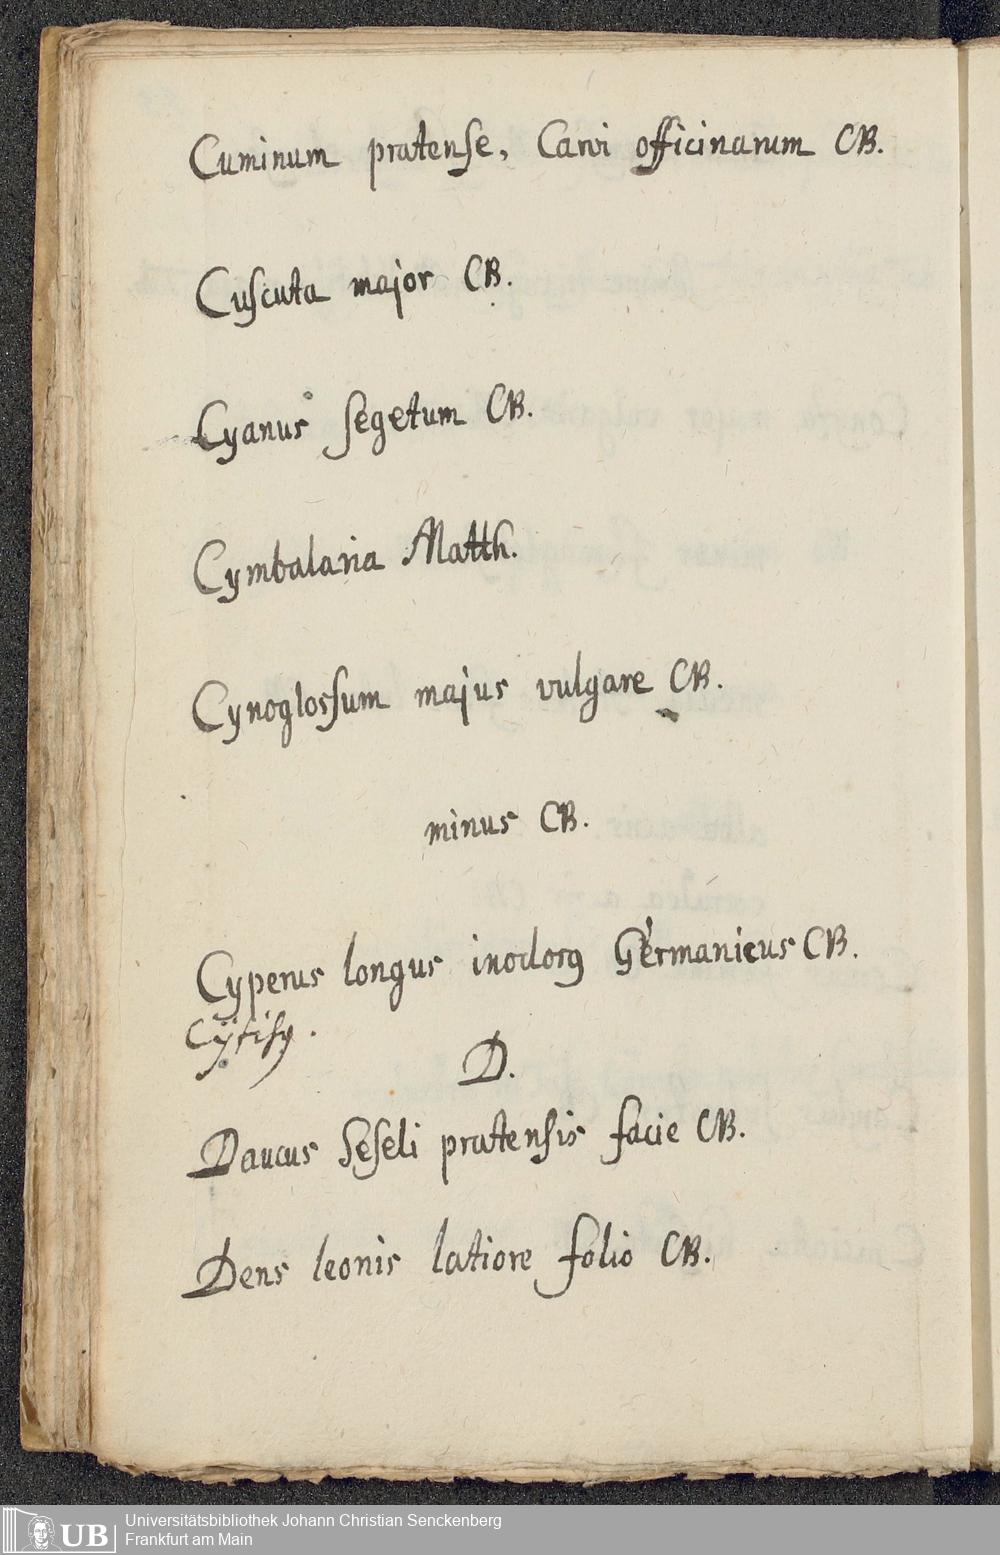 Cuminum pratense, Carvi officinarum CB.
Cuscuta major CB.
Cyanus segetum CB.
Cymbalaria Matth.
Cynoglossum majus vulgare CB.
minus CB.
Cyperus longus inodorꝰ Germanicus CB.
Cÿtisꝰ.
D.
Daucus Seseli pratensis facie CB.
Dens leonis latiore folio CB.
UB
Universitätsbibliothek Johann Christian Senckenberg
Frankfurt am Main